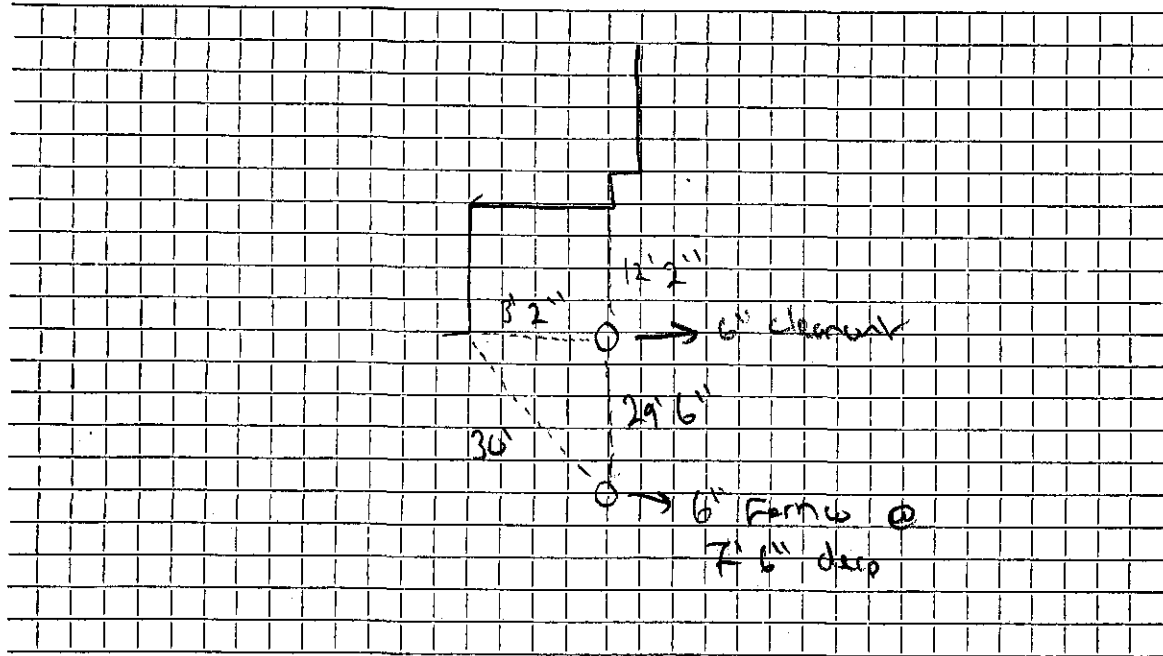 12' 2"
3' 2"
6" cleanout
29' 6"
30'
6" Fernco @
7' 6" deep